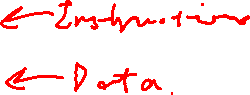 ← Instruction
← Data.